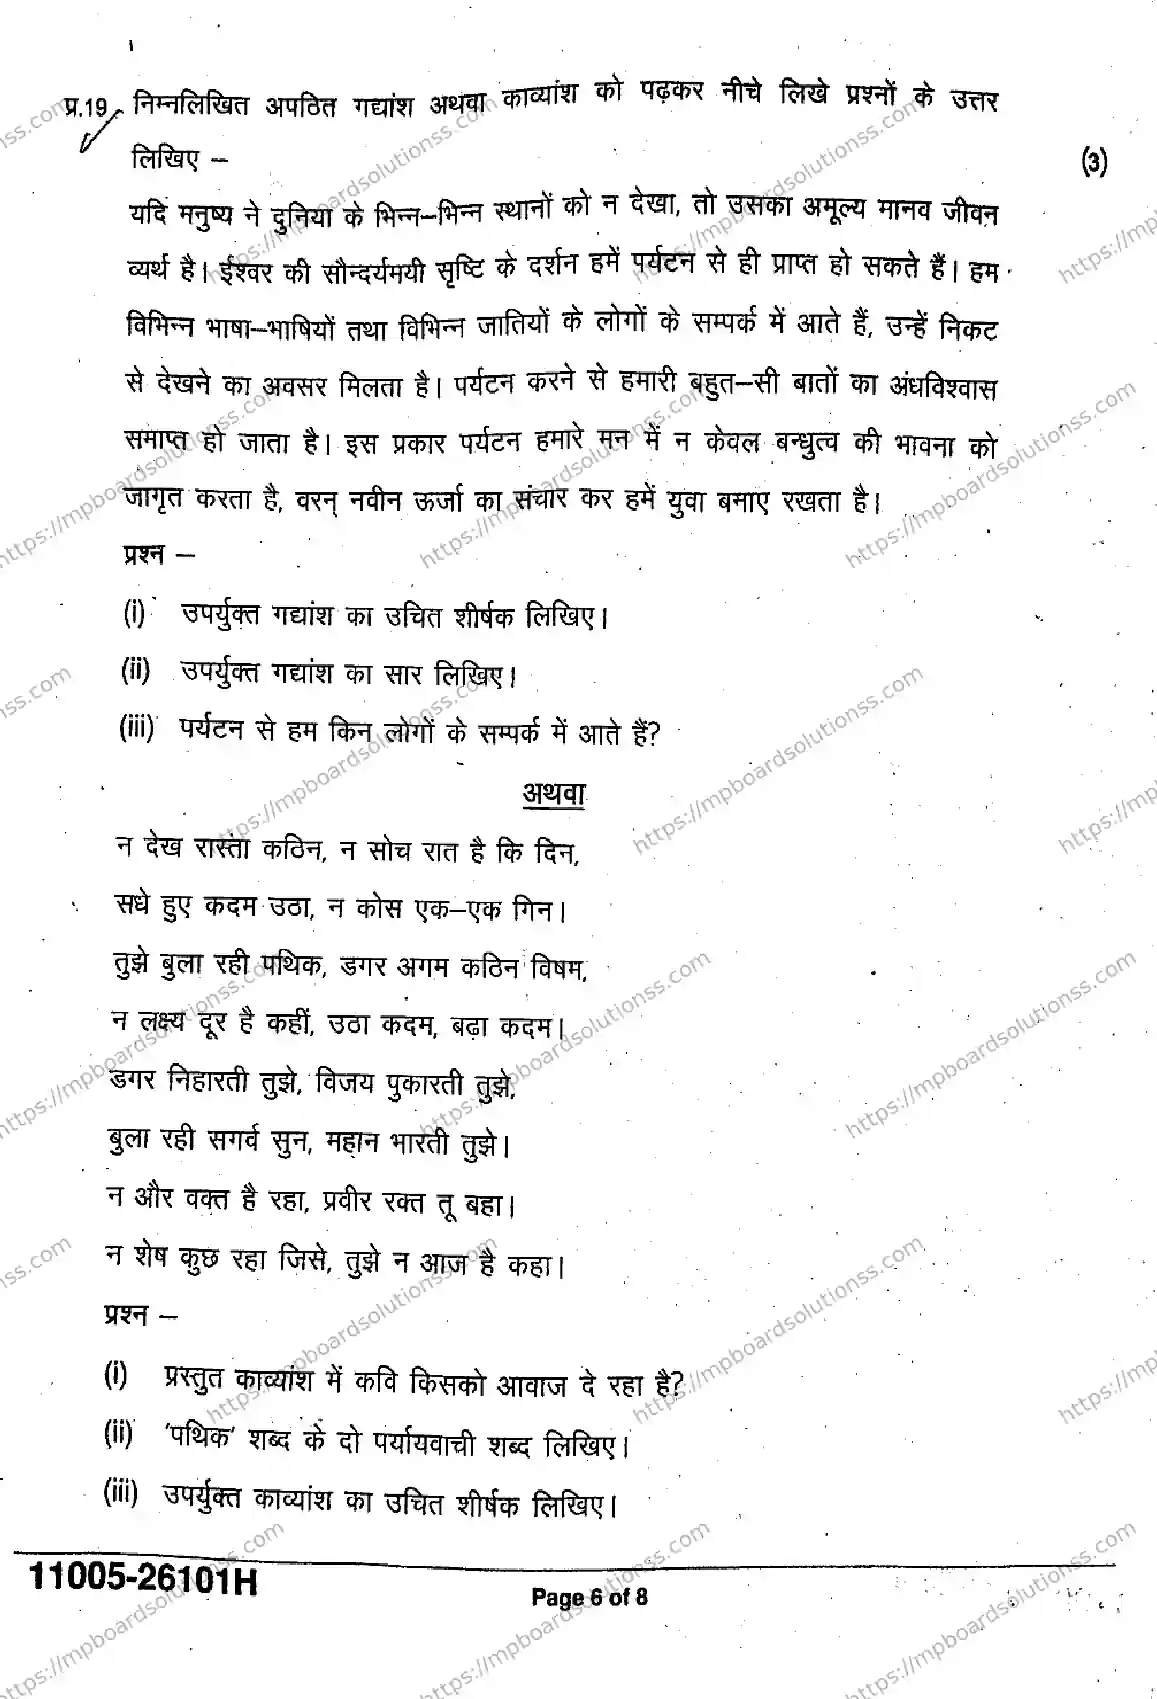 प्र.19 निम्नलिखित अपठित गद्यांश अथवा काव्यांश को पढ़कर नीचे लिखे प्रश्नों के उत्तर
लिखिए – (3)
यदि मनुष्य ने दुनिया के भिन्न–भिन्न स्थानों को न देखा, तो उसका अमूल्य मानव जीवन
व्यर्थ है। ईश्वर की सौन्दर्यमयी सृष्टि के दर्शन हमें पर्यटन से ही प्राप्त हो सकते हैं। हम
विभिन्न भाषा–भाषियों तथा विभिन्न जातियों के लोगों के सम्पर्क में आते हैं, उन्हें निकट
से देखने का अवसर मिलता है। पर्यटन करने से हमारी बहुत–सी बातों का अंधविश्वास
समाप्त हो जाता है। इस प्रकार पर्यटन हमारे मन में न केवल बन्धुत्व की भावना को
जागृत करता है, वरन् नवीन ऊर्जा का संचार कर हमें युवा बनाए रखता है।
प्रश्न –
(i) उपर्युक्त गद्यांश का उचित शीर्षक लिखिए।
(ii) उपर्युक्त गद्यांश का सार लिखिए।
(iii) पर्यटन से हम किन लोगों के सम्पर्क में आते हैं?
अथवा
न देख रास्ता कठिन, न सोच रात है कि दिन,
सधे हुए कदम उठा, न कोस एक–एक गिन।
तुझे बुला रही पथिक, डगर अगम कठिन विषम,
न लक्ष्य दूर है कहीं, उठा कदम, बढ़ा कदम।
डगर निहारती तुझे, विजय पुकारती तुझे,
बुला रही सगर्व सुन, महान भारती तुझे।
न और वक्त है रहा, प्रवीर रक्त तू बहा।
न शेष कुछ रहा जिसे, तुझे न आज है कहा।
प्रश्न –
(i) प्रस्तुत काव्यांश में कवि किसको आवाज दे रहा है?
(ii) 'पथिक' शब्द के दो पर्यायवाची शब्द लिखिए।
(iii) उपर्युक्त काव्यांश का उचित शीर्षक लिखिए।
11005-26101H
Page 6 of 8
https://mpboardsolutionss.com